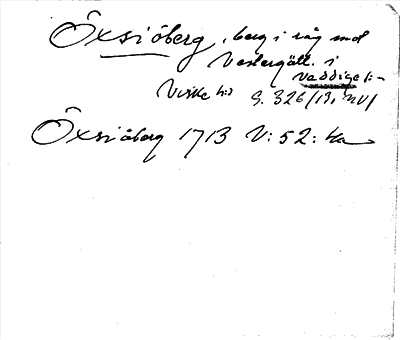 Öxsiöberg, berg i råg mot
Västergötl. i
Veddige s:n
Viske hd G. 326/13, NV/
Öxsiöberg 1713 V: 52: 4a